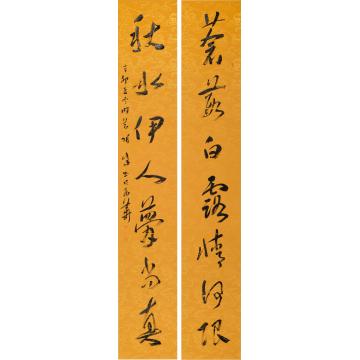 蒼葭白露情何限
秋水伊人夢尚真